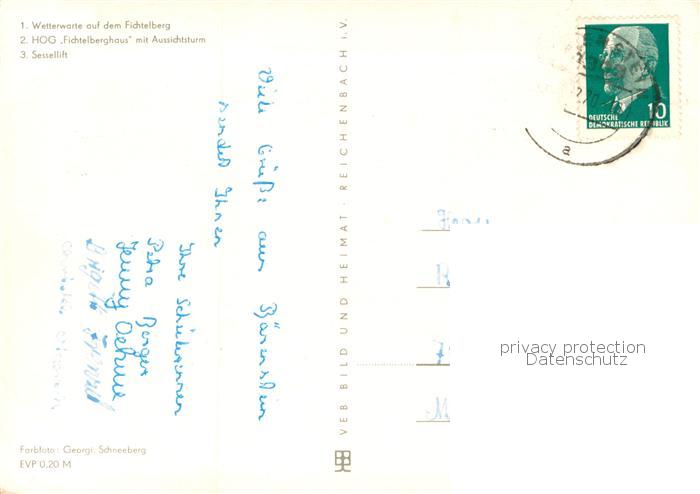 1. Wetterwarte auf dem Fichtelberg
2. HOG „Fichtelberghaus" mit Aussichtsturm
3. Sessellift
Viele Grüße aus Bärenstein
sendet Ihnen
Ihre Schülerinnen
Petra Berger
Jenny Oehme
VEB BILD UND HEIMAT · REICHENBACH i. V.
DEUTSCHE
DEMOKRATISCHE REPUBLIK
10
a
privacy protection
Datenschutz
Farbfoto: Georgi, Schneeberg
EVP 0,20 M